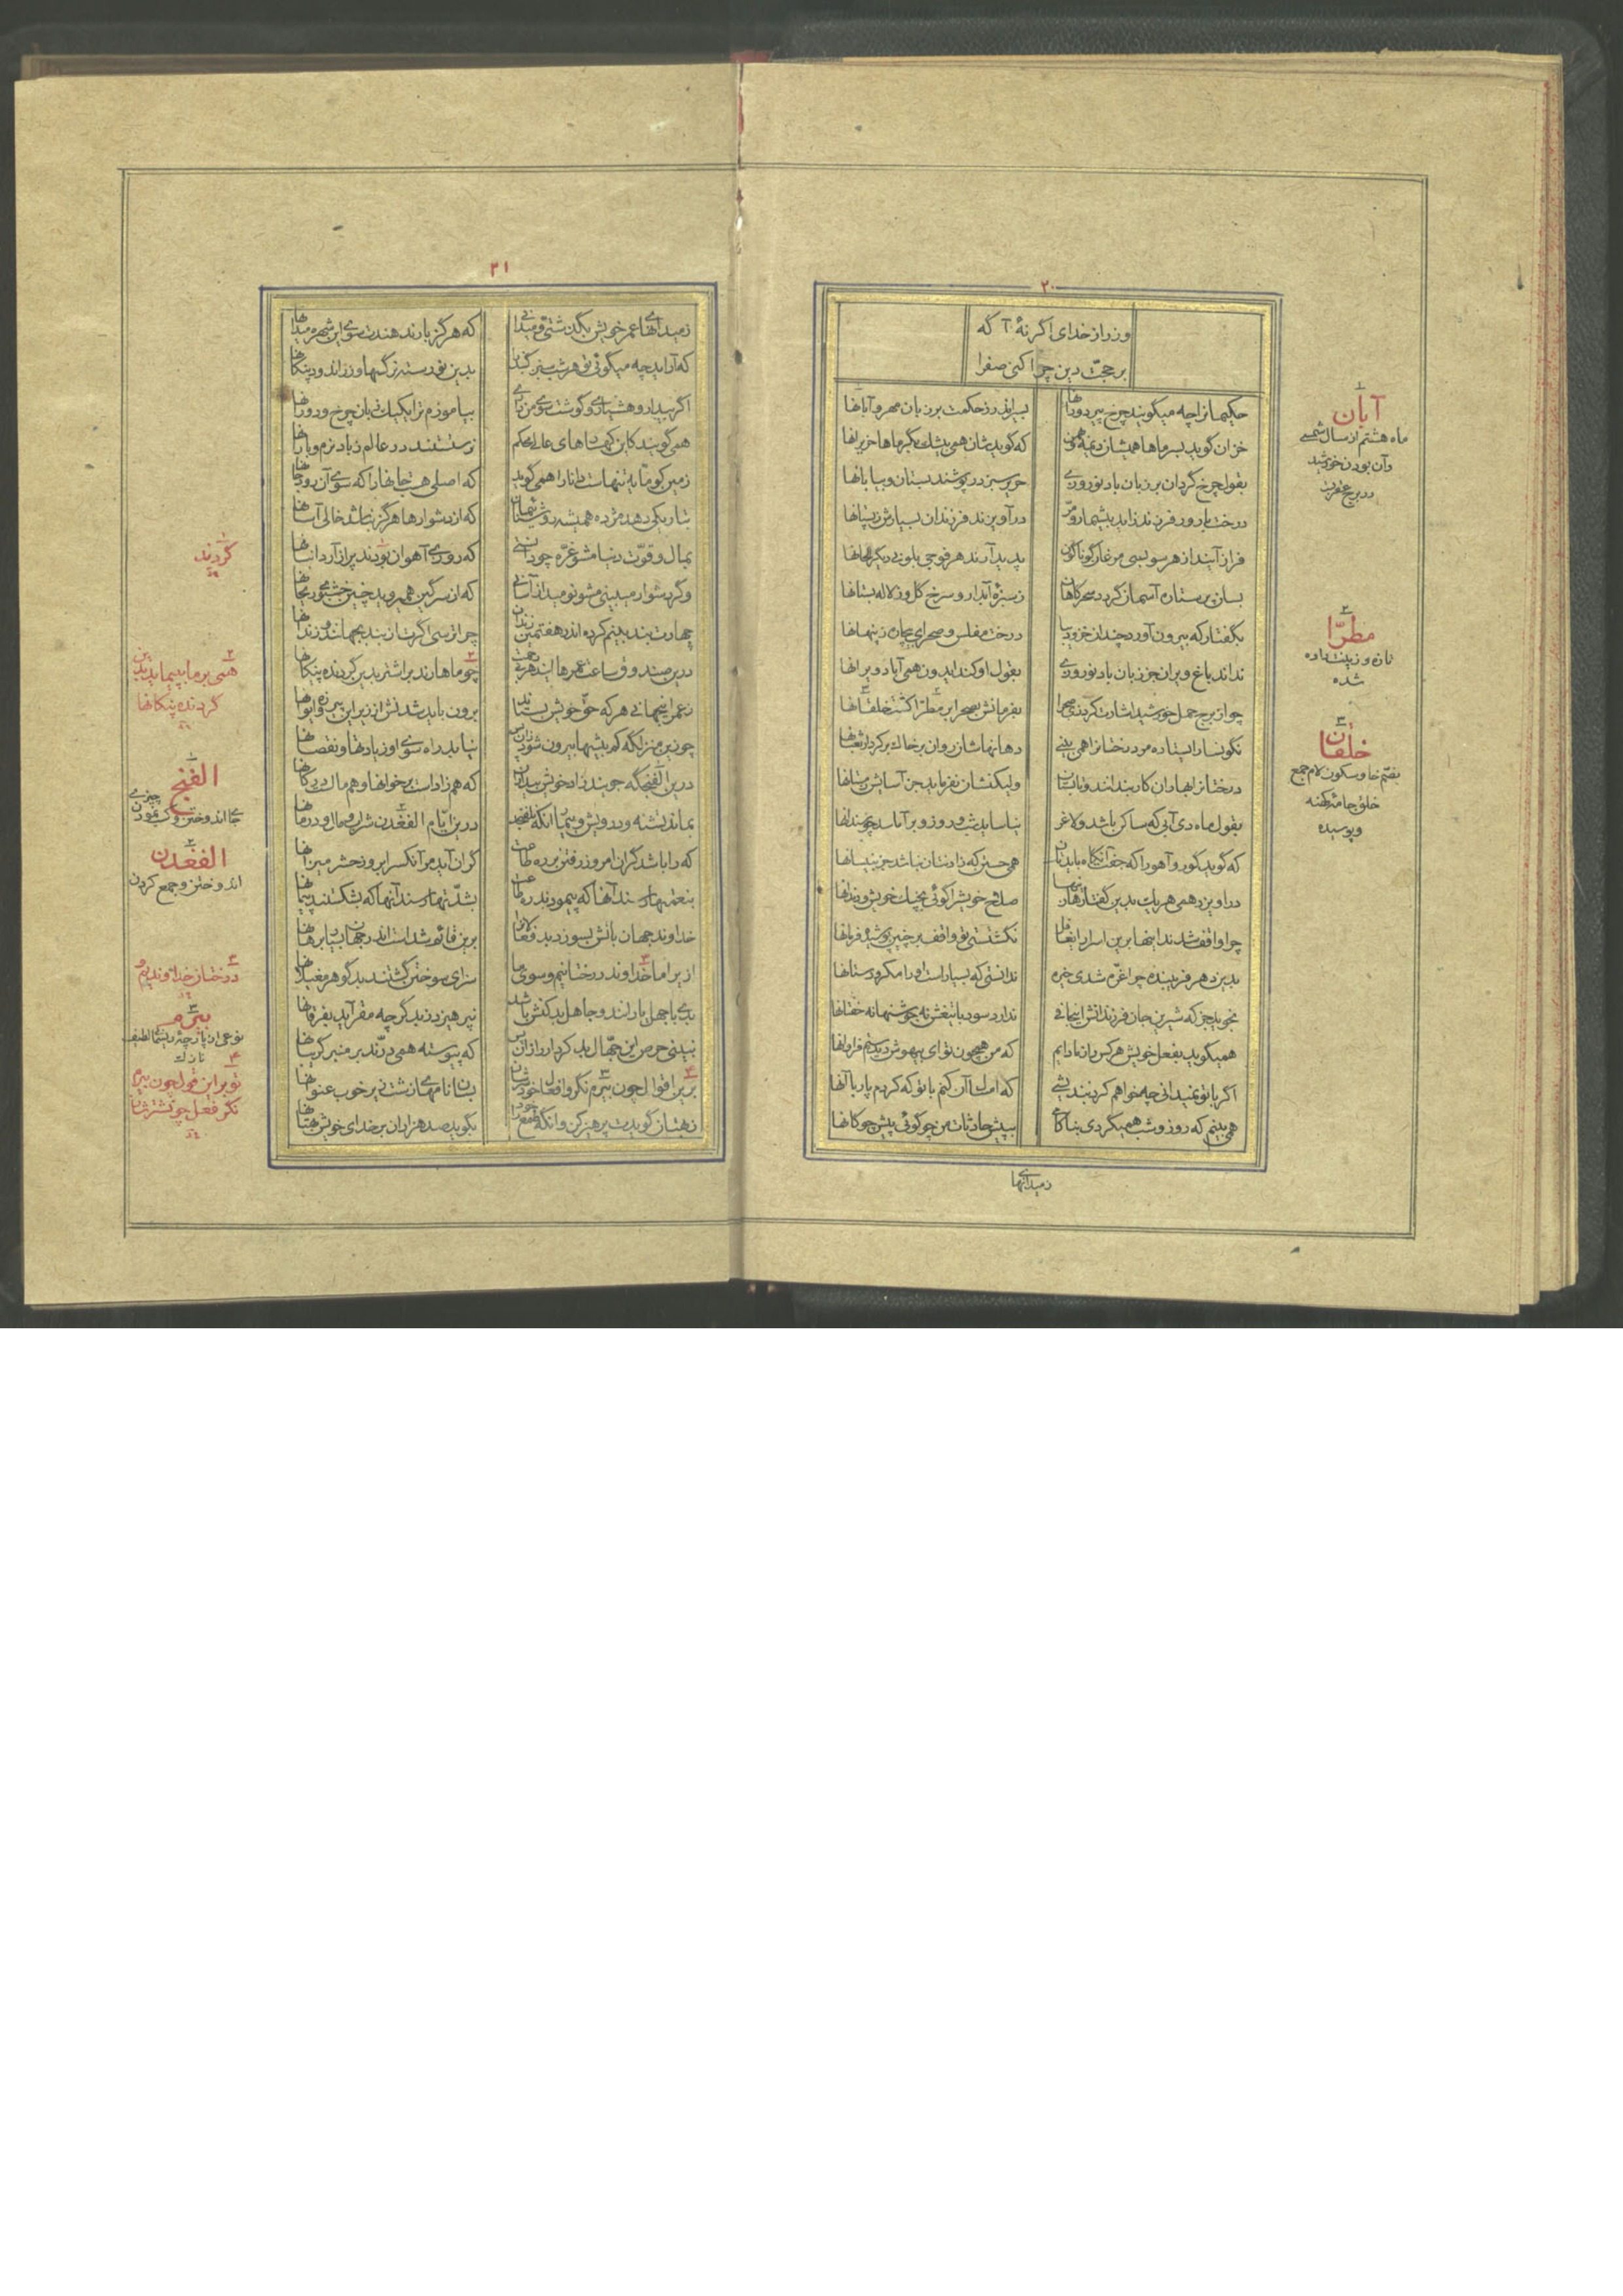 ۲۰
ور راز خدای اگر نهٔ آگه
بر حجّت دین چرا کنی صفرا
حکیمانرا چه میگویند چرخ پیر و دورانها
بسیر اندر ز حکمت بر زبان مهر و آبانها
خزان گوید بسرماها همیشان دی مه و بهمن
که گویدشان همی بیشک بگرماها حزیرانها
بقول چرخ گردان بر زبان باد نوروزی
حریر سبز در پوشند بستان و بیابانها
درخت بارور فرزند زاید بیشمار و مر
در آویزند فرزندان بسیارش ز پستانها
فراز آیند از هر سو بسی مرغان گوناگون
پدید آرند هر فوجی بلونی دیگر الحانها
بسان پرستاره آسمان گردد سحرگاهان
ز سبزه آبدار و سرخ گل وز لاله بستانها
بگفتار که بیرون آورد چندان خز و دیبا
درخت مفلس و صحرای بیچاره ز پنهانها
نداند باغ ویران جز زبان باد نوروزی
بقول او کند ایدون همی آباد ویرانها
چو از برج حمل خورشید اشارت کرد زی صحرا
بفرمانش بصحرا بر مطرّا گشت خلقانها
نگونسار ایستاده مر درختانرا همی بینی
دهانهاشان روان بر خاک بر کردار ثعبانها
درختانرا بهاران کاربندانند و تابستان
ولیکنشان نفرماید جز آسایش زمستانها
بقول ماه دی آبی که ساکن باشد و لاغر
بیاساید شب و روز و بر آماسد چو سندانها
که گوید گور و آهو را که جفت آنگاه بایدتان
همی جستن که زادنتان نباشد جز بنیسانها
در آویزد همی هر یک بدین گفتارها زینها
صلاح خویش را گوئی بچنگ خویش و دندانها
چرا واقف شدند اینها برین اسرار ای غافل
نگشتستی تو واقف بر چنین پوشیده فرمانها
بدین دهر فریبنده چرا غرّه شدی خیره
ندانستی که بسیار است او را مکر و دستانها
نجوید جز که شیرین جان فرزندانش این جافی
ندارد سود با تیغش نه جوشنها نه خفتانها
همیگوید بفعل خویش هر کس را ز ما دایم
که من همچون تو ای بیهوش دیدستم فراوانها
اگر با تو نمیدانی چه خواهم کرد نندیشی
که امسال آن کنم با تو که کردم پار با آنها
همی بینم که روز و شب همیگردی بناکامی
بپیش حادثات من چو گوئی پیش چوگانها
ز میدانهای
آبان
ماه هشتم از سال شمسی
و آن بودن خورشید
در برج عقرب
مطرّا
تازه و زینت داده
شده
خلقان
بضمّ خا و سکون لام جمع
خلق جامهٔ کهنه
و پوسیده
۲۱
ز میدانهای عمر خویش بگذشتی و میدانی
که هرگز باز ندهندت سوی این شهره میدانها
بدین نو رسته نرگسها و زراندود پنگانها
اگر بیدار و هشیاری و گوشت سوی من داری
بیاموزم ترا یک یک زبان چرخ و دورانها
همی گویند کاین کهسارهای عالی محکم
نرستستند در عالم ز باد نرم و بارانها
زمین کو مایهٔ تنهاست دانا را همی گوید
که اصلی هست جانها را که سوی آن رود جانها
بتاریکی دهد مژده همیشه روشنائیمان
که از دشوارها هرگز نباشد خالی آسانها
بمال و قوّت دنیا مشو غرّه چو دانستی
که روزی آهوان بودند پر از آرد انبانها
وگر دشوار می‌بینی مشو نومید از آسانی
که از سرگین همی روید چنین خوشبوی ریحانها
چهارت بند بینم کرده اندر هفتمین زندان
چرا ترسی اگر از بند بجهانند و زندانها
درین صندوق ساعت عمرها این دهر بی رحمت
چو ماها رند بر اشتر بدین گردنده پنگانها
ز عمر این جهانی هر که حق خویش بستاند
برون باید شدنش از زیر این پیروزه ایوانها
چو زین منزلگه کم بیشها بیرون شود زان پس
نیابد راه سوی او زیادتها و نقصانها
درین الفنجگه جویند زاد خویش بیداران
که هم زادست بر خوانها و هم مال است در کانها
بماند تشنه و درویش و بیمار آنکه نلفنجد
درین ایّام الفغدن شراب و مال و درمانها
که را باشد گران امروز رفتن بر ره طاعت
گران آید مر آنکس را بروز حشر میزانها
بنعمتها رسند آنها که پیمودند ره طاعت
بشدّتها رسند آنها که بشکستند پیمانها
خداوند جهان باتش بسوزد بد فعالان را
برین قائم شداست اندر جهان بسیار برهانها
ازیرا ما خداوند درختانیم و سوی ما
سزای سوختن گشتند بد گوهر مغیلانها
بدی با جهل یارانند و جاهل بد کنش باشد
نپرهیزد ز بد گرچه مقر آید بفرقانها
نبینی حرص این جهّال بد کردار را زان پس
که پیوسته همی درّند بر منبر گریبانها
برین اقوال چون بیرم نگر وافعال خودشان
بسان نامهای زشت زیر خوب عنوانها
ز بهتان گویدت پرهیز کن وانگه بطمع خود
بگوید صد هزاران بر خدای خویش بهتانها
گردند
همی بر ما بپیماید بدین
گردنده پنگانها
الفنج
جای اندوختن و کسب نمودن چیزی
الفغدن
اندوختن و جمع کردن
درختان خداوندیم و
بیرم
نوعی از پارچهٔ ریسمانی لطیف
نازک
تو بر این قول چون بیرم
نگر فعل چو نشترشان